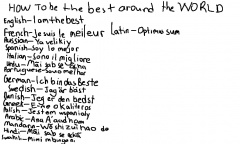 HOW To be the best around the WORLD
English-I am the best
French-Je suis le meileur Latin-Optimo sum
Russian-Ya velikiy
Spanish-Soy lo mejor
Italian-Sono il migliore
Urdu-Māi sab se
Portuguese-Sou o melhor
German-Ich bin das Beste
Swedish-Jag är bäst
Danish-Jeg er den bedst
Polish-Jestem wspaniały
Arabic-Ana A'aadham
Mandarin-Wǒ shì zuì hǎo de
Hindi-Māi sab se
Swahili-Mimi mbunga